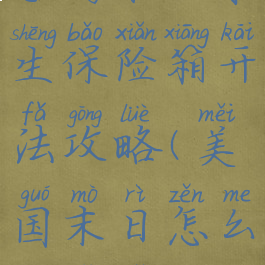 shēng bǎo xiǎn xiāng kāi
生保险箱开
fǎ gōng lüè měi
法攻略(美
guó mò rì zěn me
国末日怎么